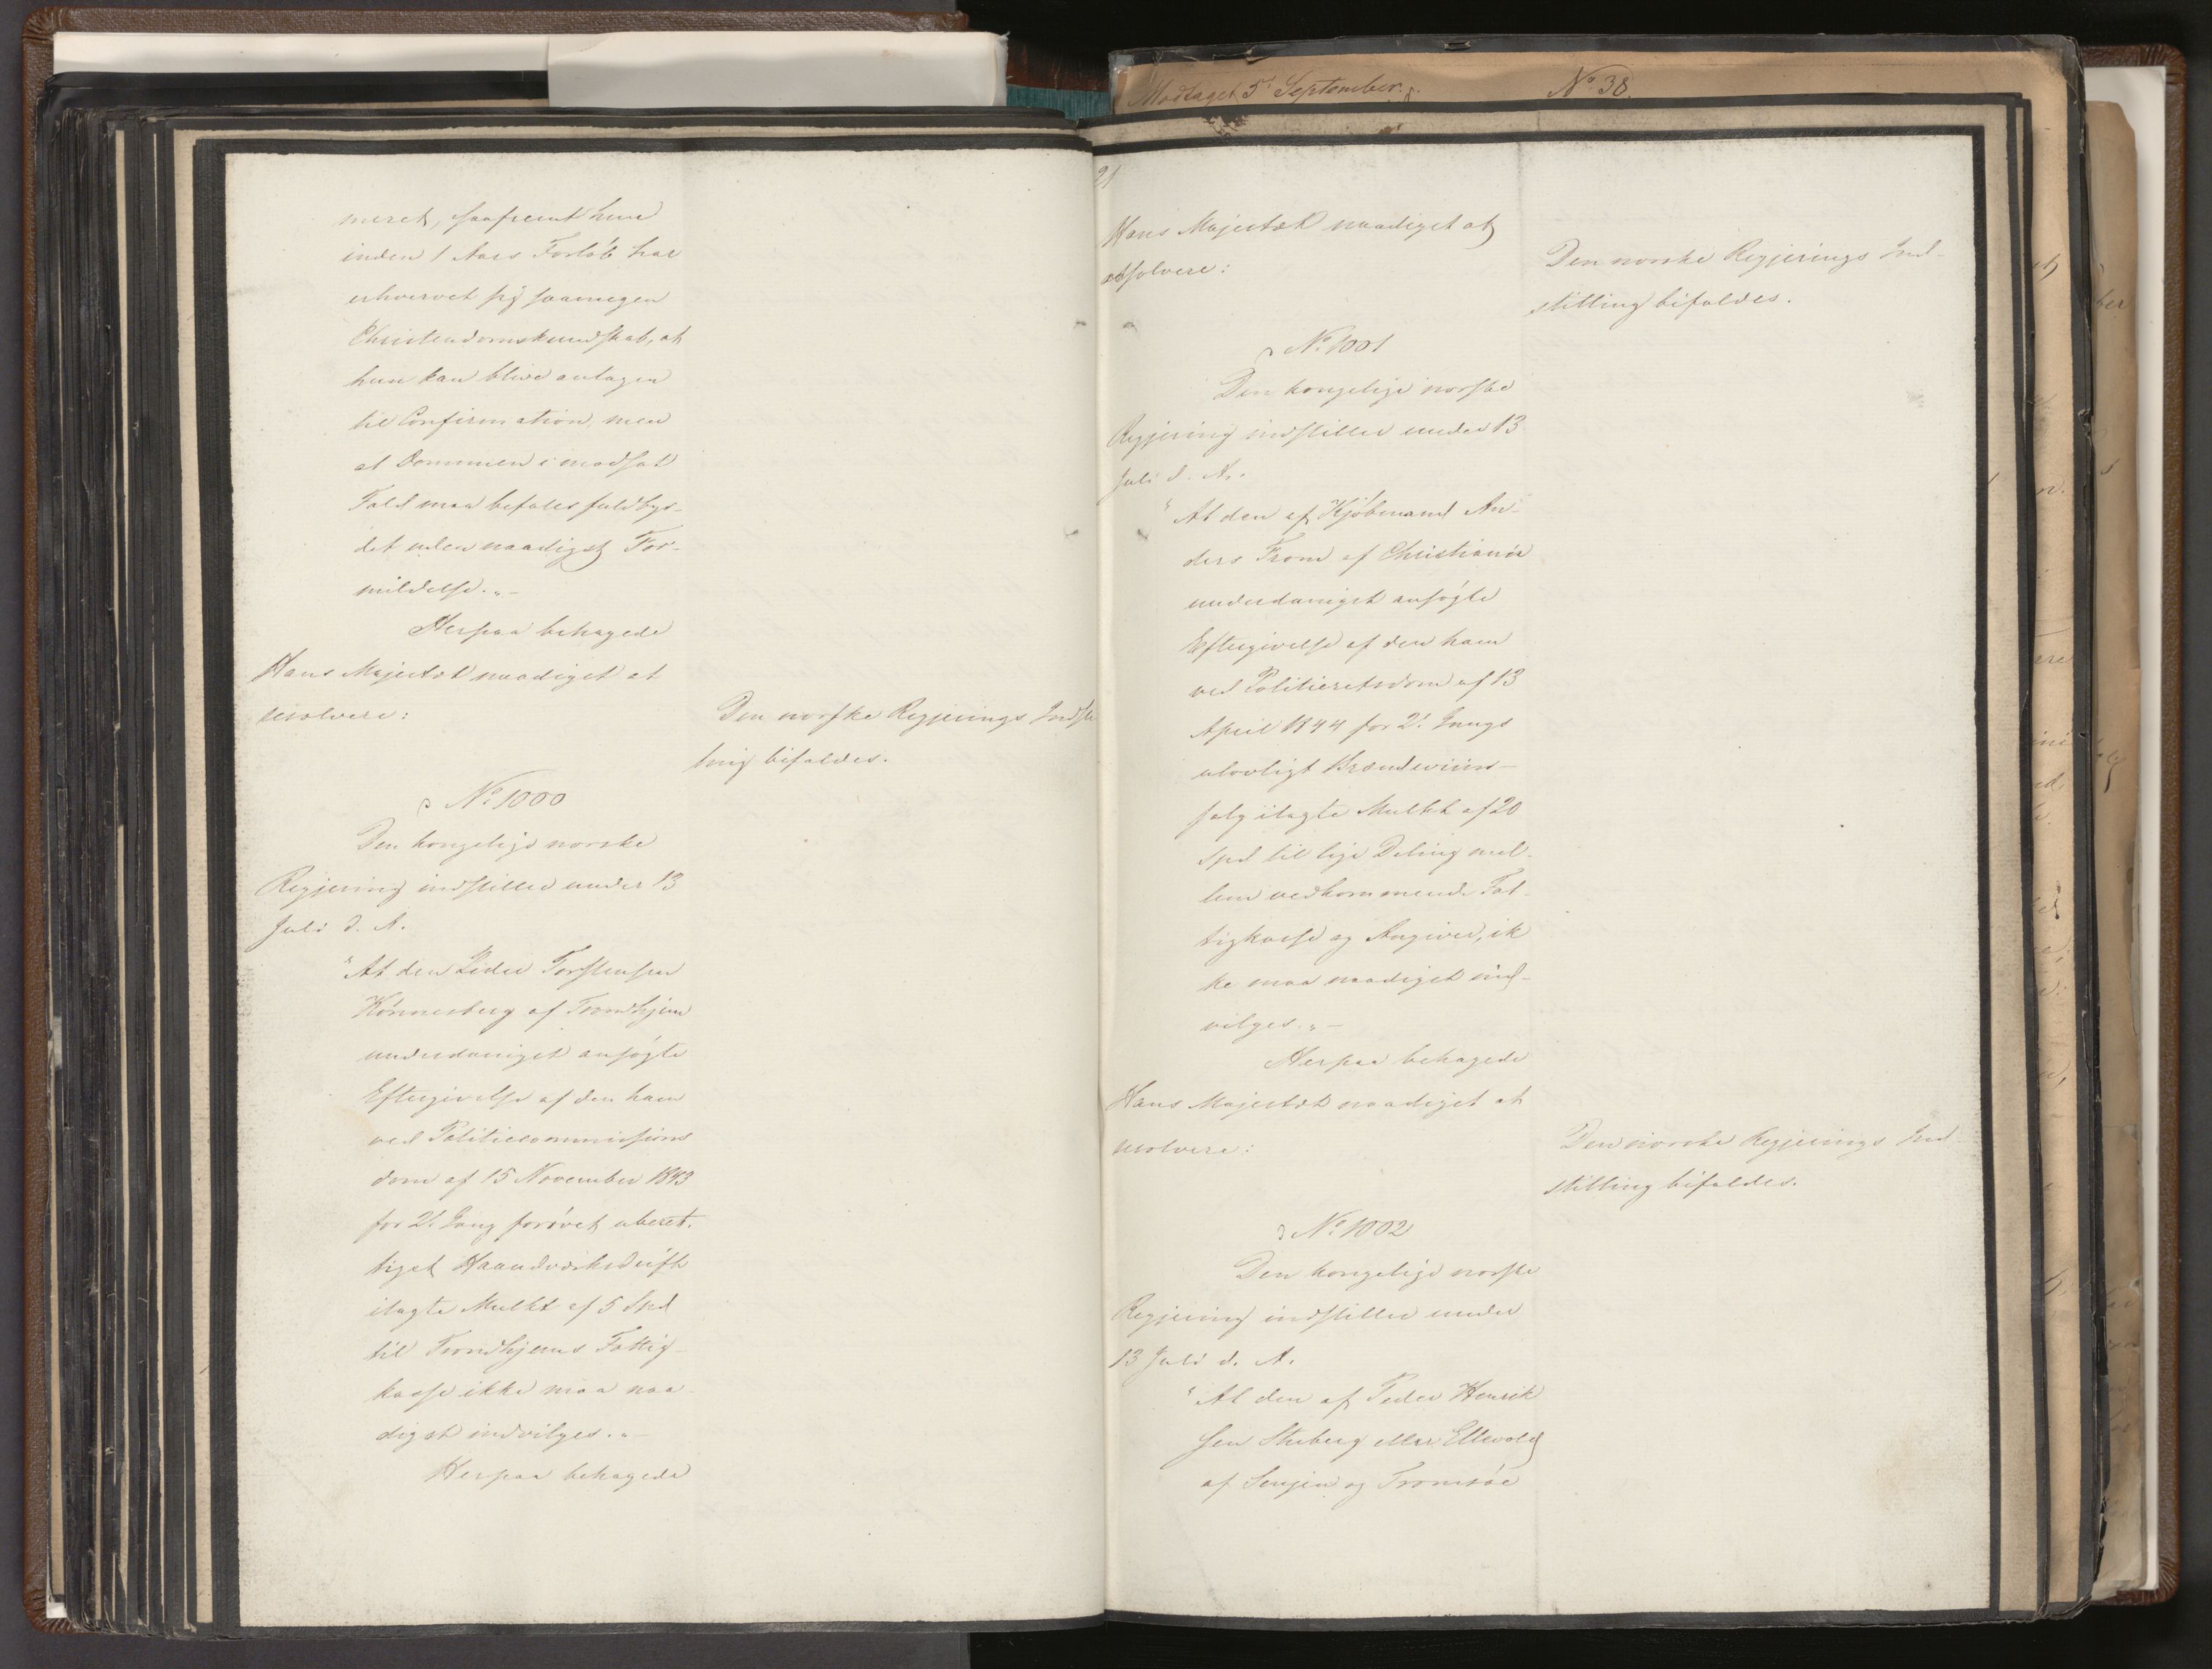 meret, saafremt hun
inden 1 Aars Forløb har
erhvervet sig saamegen
Christendomskundskab, at
hun kan blive antagen
til Confirmation, men
at Dommen i modsat
Fald maa befales fuldbyr-
det uden naadigst For-
mildelse."-
Herpaa behagede
Hans Majestæt naadigst at
resolvere:
Den norske Regjerings Indstil
ling bifaldes.
No 1000
Den kongelige norske
Regjering indstiller under 13
Juli d. A.
"At den Torstensen
af Trondhjem
underdanigst ansøgte
Eftergivelse af den ham
ved Politiecommissions
dom af 15 November 1843
for 2. Gang forøvet uberet-
tiget Haandværksdrift
ilagte Mulkt af 5 Spd
til Trondhjems Fattig-
kasse ikke maa naa-
digst indvilges."-
Herpaa behagede
Modtaget 5 September.
No 38.
21
Hans Majestæt naadigst at
resolvere:
Den norske Regjerings Ind-
stilling bifaldes.
No 1001
Den kongelige norske
Regjering indstiller under 13
Juli d. A.
"At den af Kjøbmand An-
ders From af Christiansø
underdanigst ansøgte
Eftergivelse af den ham
ved Politieretsdom af 13
April 1844 for 2. Gangs
ulovligt Brændeviins-
salg ilagte Mulkt af 20
Spd til lige Deling mel-
lem vedkommende Fat-
tigkasse og Angiver, ik
ke maa naadigst ind-
vilges."-
Herpaa behagede
Hans Majestæt naadigst at
resolvere:
Den norske Regjerings Ind
stilling bifaldes.
No 1002
Den kongelige norske
Regjering indstiller under
13 Juli d. A.
"At den af Peder Henrik
sen eller Ellevold
af Senjen og Tromsøe